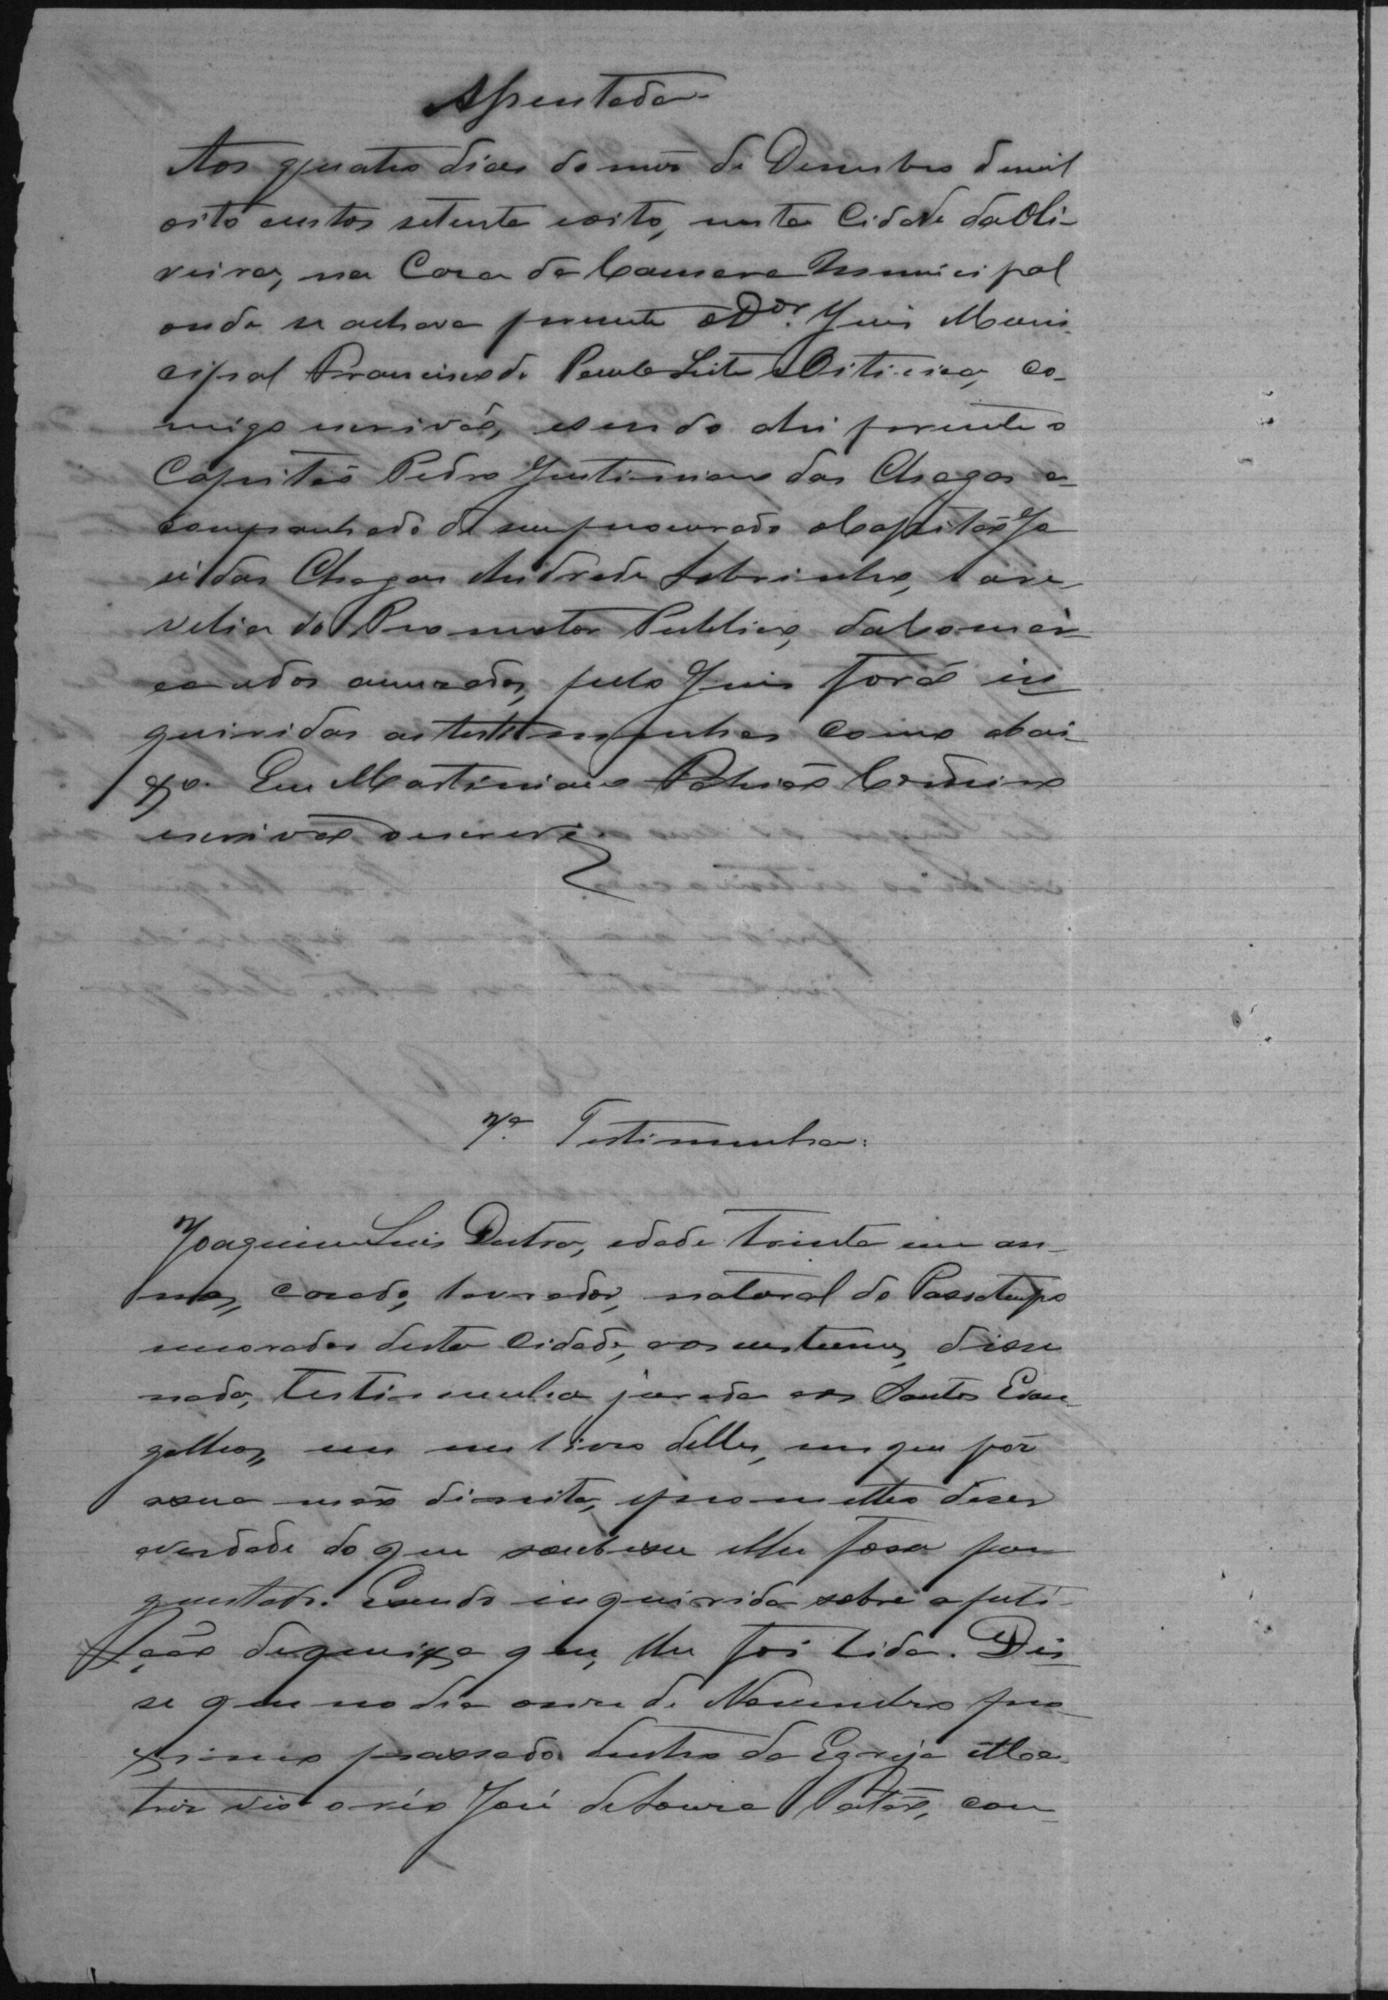 Assentada
Aos quatro dias do mes de Desembro de mil
oito centos setenta eoito, nesta Cidade da Oli-
veira, na Casa da Camara Municipal
onde se achava presente o Dor. Juis Muni-
cipal Francisco de Paula Leite e Oiticica, co-
migo escrivão, e sendo ahi presente o
Capitão Pedro Justiniano das Chagas a-
companhado de seu procurado o Capitão Jo
sé das Chagas Andrade Sobrinho, e a re-
velia do Promotor Publico, da Comar-
ca e dos accusados, pelo Juis forão in-
quiridas as testimunhas como abai-
xo. Eu Martiniano
escrivão o escrevi.
7a. Testimunha:
Joaquim Luis Dutra, edade trinta eum an-
nos, casado, lavrador, natural do Passatempo
morador desta Cidade, aos custumes, disse
nada, testimunha jurada aos Santos Evan-
gelhos, em um livro delles, em que pôs
a sua mão direita, e prometteo diser
averdade do que soubesse e lhe fosse per
guntado. E sendo inquirida sobre a peti-
ção de queixa que, lhe foi lida. Dis-
se que no dia onse de Novembro pro-
ximo passado dentro da Egreja Ma-
tris vio o réo José de Sousa Patão, com